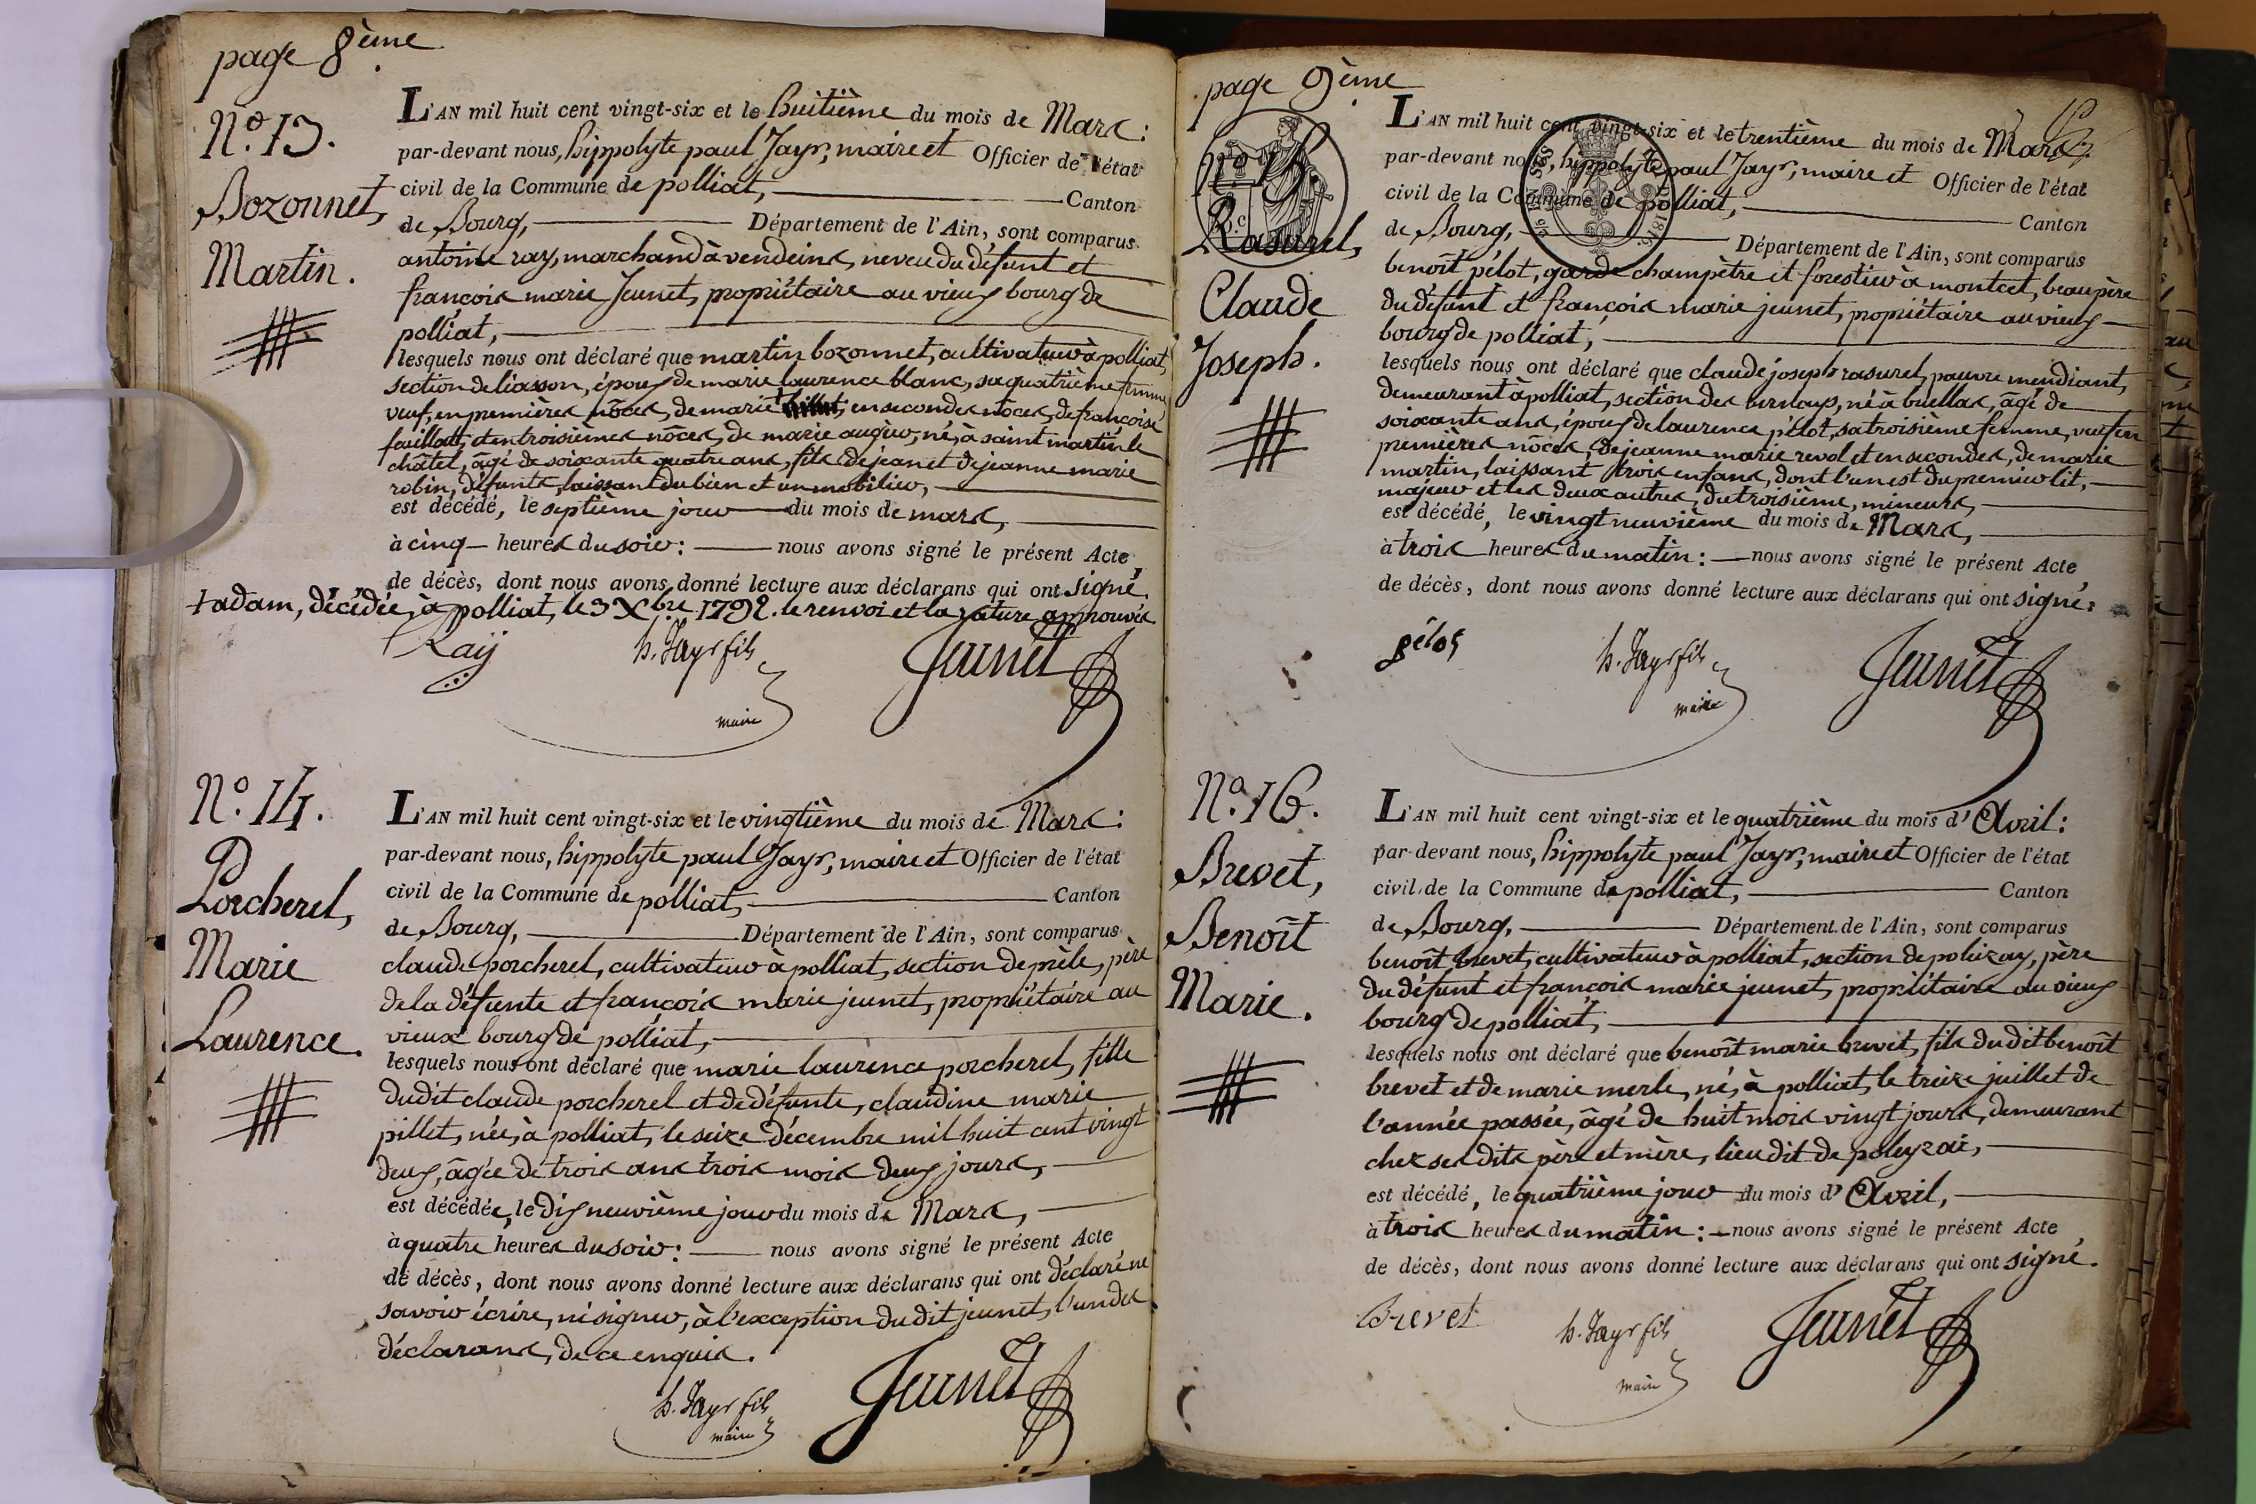 page 8ème
N.o 13.
Bozonnet,
Martin.
L'AN mil huit cent vingt-six et le huitième du mois de Mars:
par-devant nous, hippolyte paul Jayr, maire et Officier de l'état
civil de la Commune de polliat, Canton
de Bourg, Département de l'Ain, sont comparus
antoine ray, marchand à vendeins, neveu du défunt et
françois marie Jeunet, propriétaire au vieux bourg de
polliat,
lesquels nous ont déclaré que martin bozonnet, cultivateur à polliat,
section de liasson, époux de marie laurence blanc, sa quatrième femme
veuf, en premières nôces, de marie + en secondes nôces, de françoise
feuillat, et en troisièmes nôces, de marie augier, né, à saint martin le
châtel, âgé de soixante quatre ans, fils de jean et de jeanne marie
robin, défunts, laissant du bien et un mobilier,
est décédé, le septième jour du mois de mars,
à cinq heures du soir: nous avons signé le présent Acte
de décès, dont nous avons donné lecture aux déclarans qui ont signé.
+ adam, décédée, à polliat, le 3 Xbre 1792. le renvoi et la rature approuvés
Raÿ
h. Jayr fils
maire
Jeunet
N.o 14.
Porcherel,
Marie
Laurence.
L'AN mil huit cent vingt-six et le vingtième du mois de Mars:
par-devant nous, hippolyte paul Jayr, maire et Officier de l'état
civil de la Commune de polliat, Canton
de Bourg, Département de l'Ain, sont comparus
claude porcherel, cultivateur à polliat, section de prèle, père
de la défunte et françois marie jeunet, propriétaire au
vieux bourg de polliat,
lesquels nous ont déclaré que marie laurence porcherel, fille
du dit claude porcherel et de défunte, claudine marie
pillet, née, à polliat, le seize décembre mil huit cent vingt
deux, âgée de trois ans trois mois deux jours,
est décédée, le dix neuvième jour du mois de Mars,
à quatre heures du soir: nous avons signé le présent Acte
de décès, dont nous avons donné lecture aux déclarans qui ont déclaré ne
savoir écrire, ni signer, à l'exception du dit jeunet, l'un des
déclarans, de ce enquis.
h. Jayr fils
maire
Jeunet
page 9ème
N.o 15.
Rasurel,
Claude
Joseph.
L'AN mil huit cent vingt-six et le trentième du mois de Mars:
par-devant nous, hippolyte paul Jayr, maire et Officier de l'état
civil de la Commune de polliat, Canton
de Bourg, Département de l'Ain, sont comparus
benoît pélot, garde champètre et forestier à montcet, beau père
du défunt et françois marie jeunet, propriétaire au vieux
bourg de polliat,
lesquels nous ont déclaré que claude joseph rasurel, pauvre mendiant,
demeurant à polliat, section des, né à buellas, âgé de
soixante ans, époux de laurence pélot, sa troisième femme, veuf en
premières nôces, de jeanne marie revol et en secondes, de marie
martin, laissant trois enfans, dont l'un est du premier lit,
majeur et les deux autres, du troisième, mineurs,
est décédé, le vingt neuvième du mois de Mars,
à trois heures du matin: nous avons signé le présent Acte
de décès, dont nous avons donné lecture aux déclarans qui ont signé.
pélot
h. Jayr fils
maire
Jeunet
N.o 16.
Brevet,
Benoît
Marie.
L'AN mil huit cent vingt-six et le quatrième du mois d'Avril:
par-devant nous, hippolyte paul Jayr, maire et Officier de l'état
civil de la Commune de polliat, Canton
de Bourg, Département de l'Ain, sont comparus
benoît brevet, cultivateur à polliat, section de poleizay, père
du défunt et françois marie jeunet, propriétaire au vieux
bourg de polliat,
lesquels nous ont déclaré que benoît marie brevet, fils du dit benoît
brevet et de marie merle, né, à polliat, le treize juillet de
l'année passée, âgé de huit mois vingt jours, demeurant
chez ses dits père et mère, lieu dit de poleyzai,
est décédé, le quatrième jour du mois d'Avril,
à trois heures du matin: nous avons signé le présent Acte
de décès, dont nous avons donné lecture aux déclarans qui ont signé.
Brevet
h. Jayr fils
maire
Jeunet